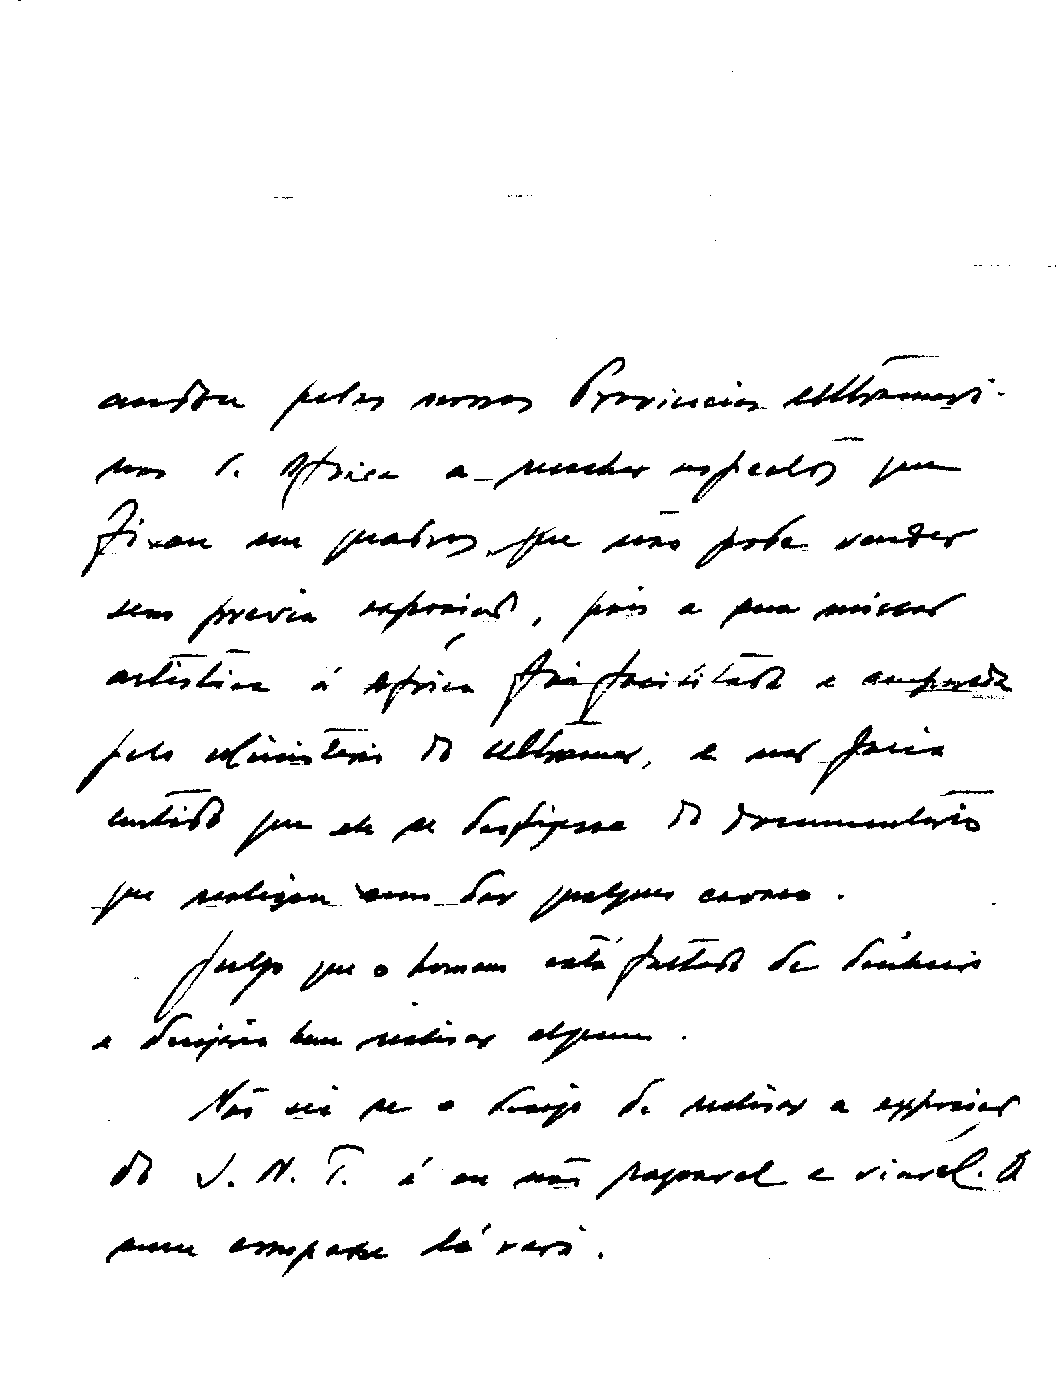 andou pelas nossas Provincias Ultramari-
nas d. Africa a recolher aspectos que
fixou em quadros que não pode vender
sem previa exposição, pois a sua missão
artistica á Africa foi facilitada e amparada
pelo Ministerio do Ultramar, e não faria
sentido que ele se desfizesse do documentario
que realizou sem dar qualquer
Julgo que o homem está faltado de dinheiro
e desejaria bem realisar algum.
Não sei se o desejo de realisar a exposição
do S. N. I. é ou não razoavel e viavel. O
meu compadre lá verá.